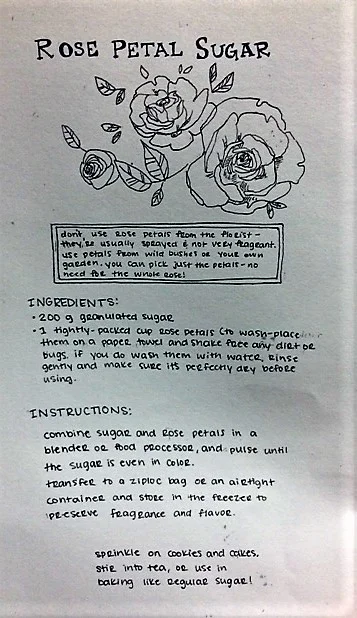 ROSE PETAL SUGAR
don't use rose petals from the florist -
they're usually sprayed & not very fragrant.
use petals from wild bushes or your own
garden. you can pick just the petals - no
need for the whole rose!
INGREDIENTS:
• 200 g granulated sugar
• 1 tightly-packed cup rose petals (to wash - place
them on a paper towel and shake free any dirt or
bugs. if you do wash them with water, rinse
gently and make sure it's perfectly dry before
using.
INSTRUCTIONS:
combine sugar and rose petals in a
blender or food processor, and pulse until
the sugar is even in color.
transfer to a ziploc bag or an airtight
container and store in the freezer to
preserve fragrance and flavor.
sprinkle on cookies and cakes,
stir into tea, or use in
baking like regular sugar!